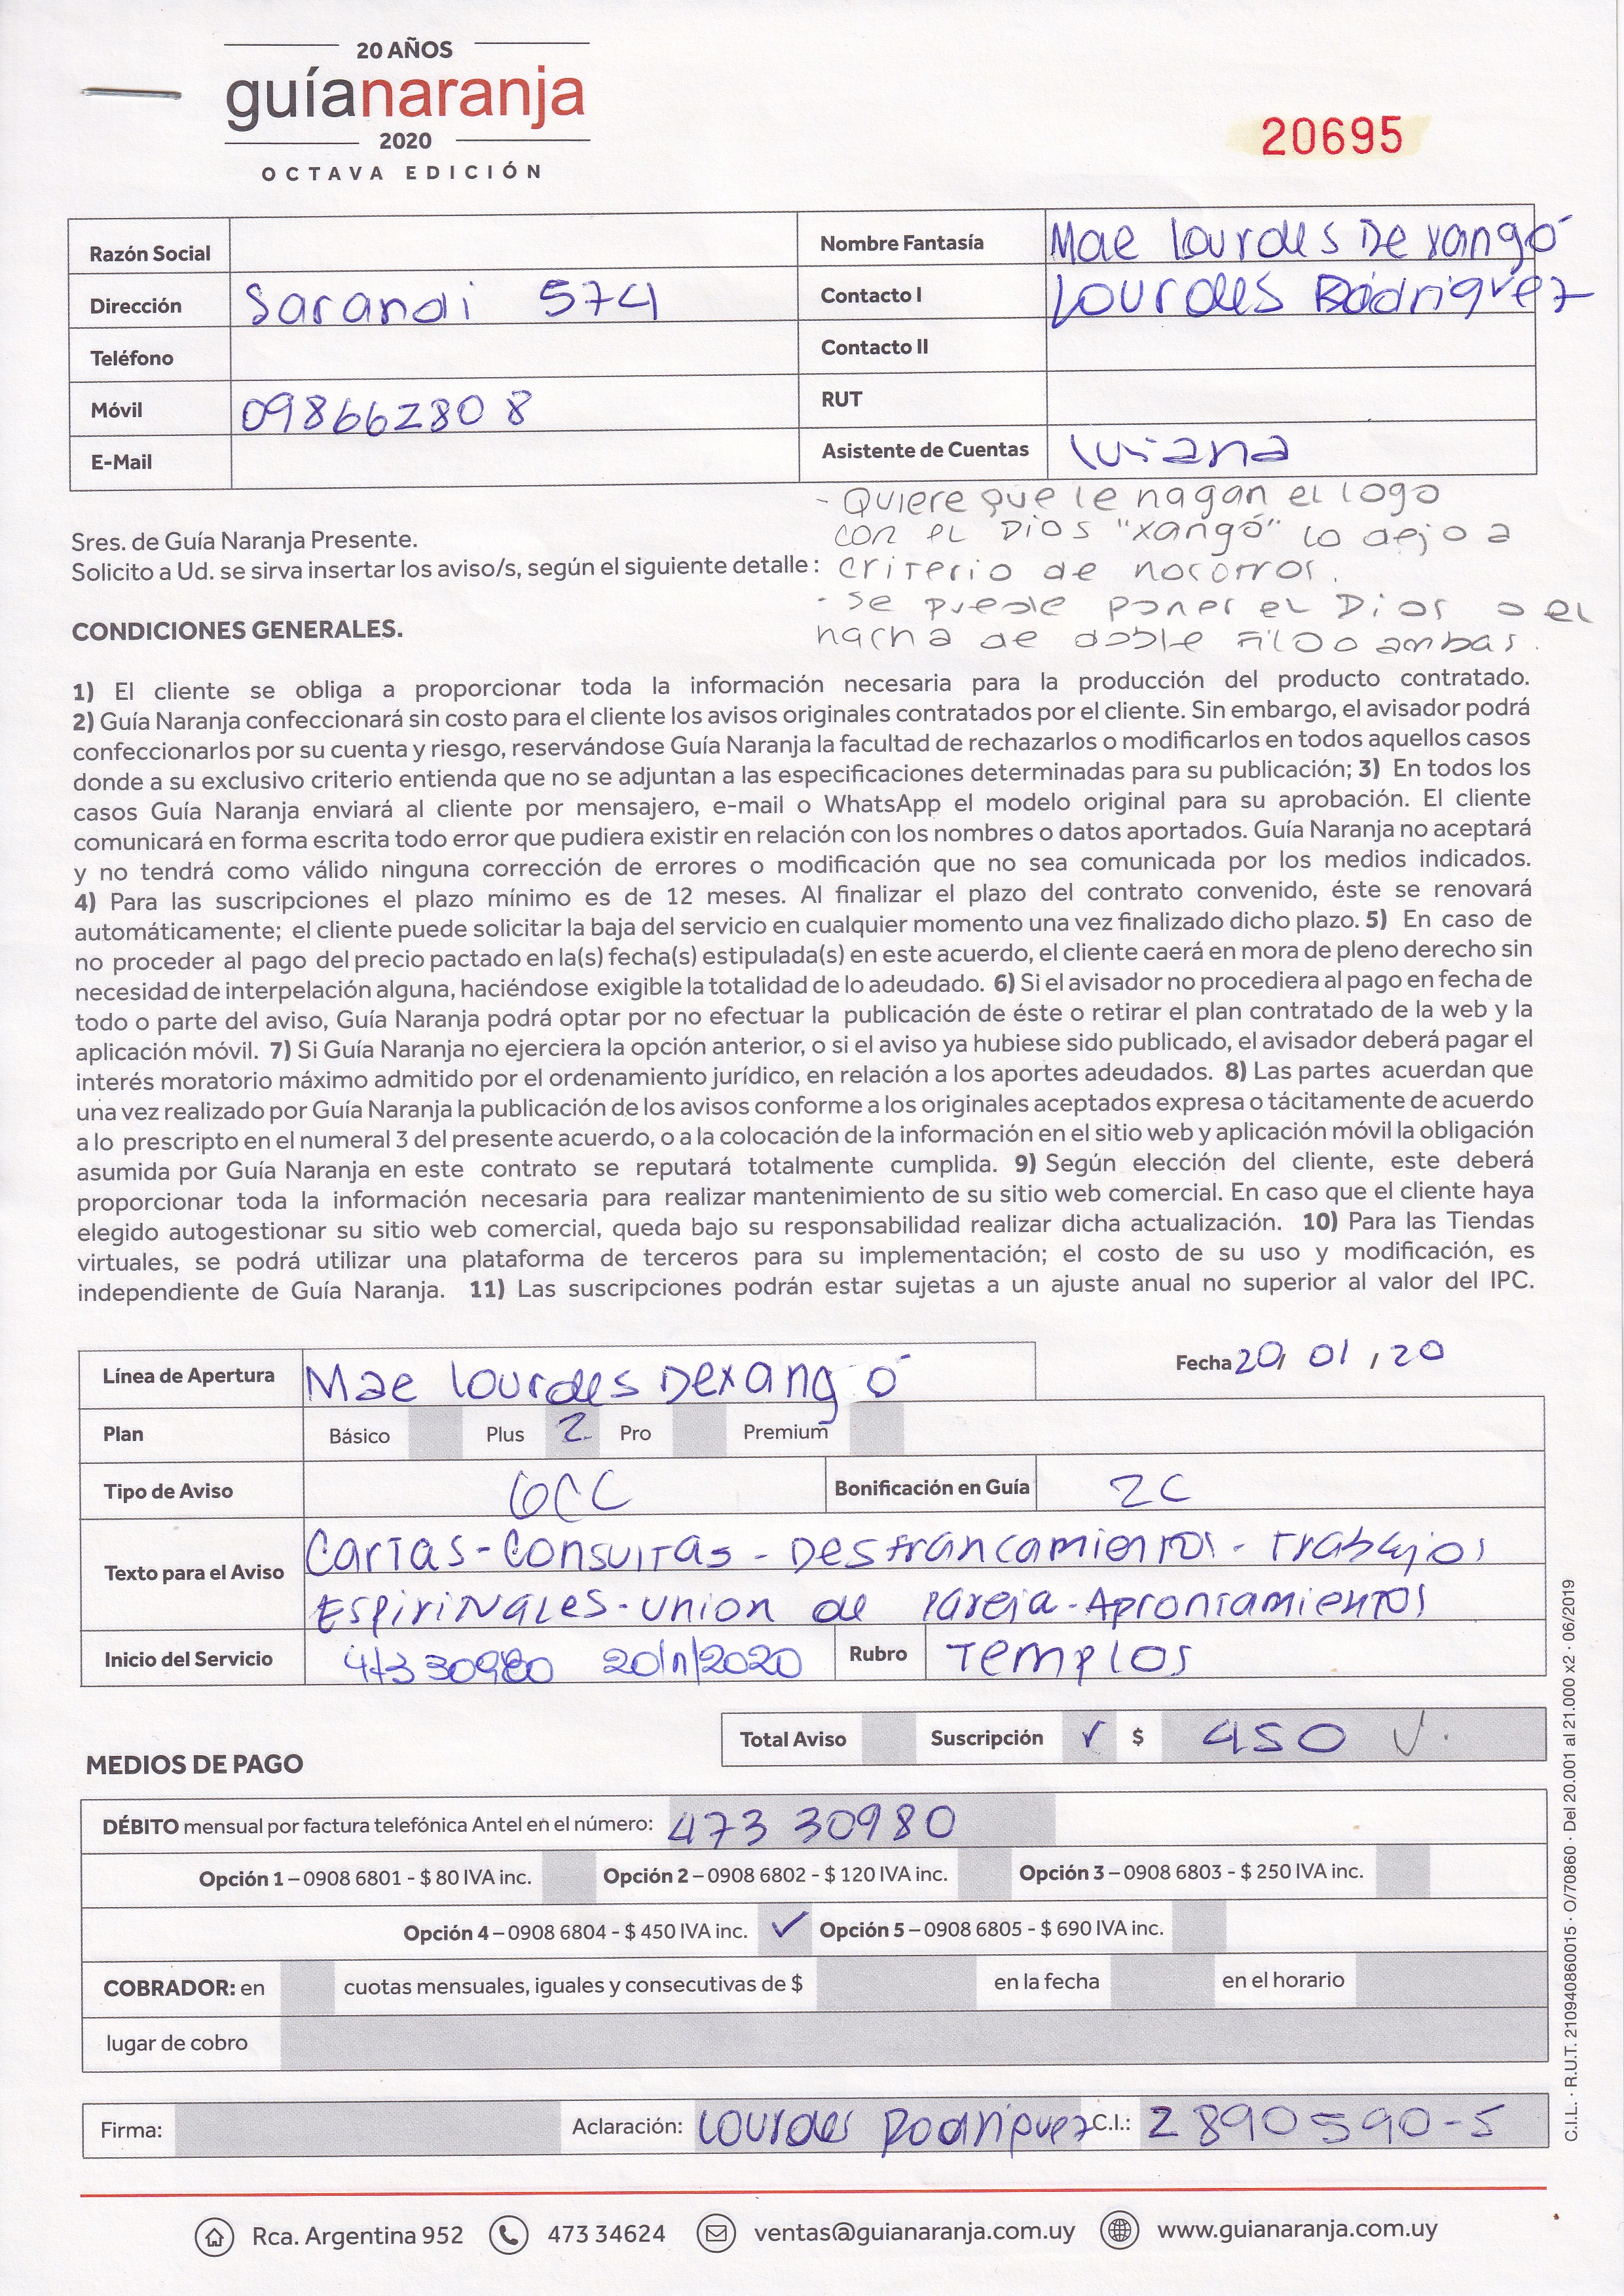 20 AÑOS
guíanaranja
2020
OCTAVA EDICIÓN
20695
Razón Social
Nombre Fantasía Mae Lourdes De xangó
Dirección Sarandi 574
Contacto I Lourdes Rodriguez
Teléfono
Contacto II
Móvil 098662808
RUT
E-Mail
Asistente de Cuentas
- Quiere que le hagan el logo
con el Dios "xangó" lo dejo a
criterio de nosotros.
- se puede poner el Dios o el
hacha de doble Filo o ambas.
Sres. de Guía Naranja Presente.
Solicito a Ud. se sirva insertar los aviso/s, según el siguiente detalle:
CONDICIONES GENERALES.
1) El cliente se obliga a proporcionar toda la información necesaria para la producción del producto contratado.
2) Guía Naranja confeccionará sin costo para el cliente los avisos originales contratados por el cliente. Sin embargo, el avisador podrá
confeccionarlos por su cuenta y riesgo, reservándose Guía Naranja la facultad de rechazarlos o modificarlos en todos aquellos casos
donde a su exclusivo criterio entienda que no se adjuntan a las especificaciones determinadas para su publicación; 3) En todos los
casos Guía Naranja enviará al cliente por mensajero, e-mail o WhatsApp el modelo original para su aprobación. El cliente
comunicará en forma escrita todo error que pudiera existir en relación con los nombres o datos aportados. Guía Naranja no aceptará
y no tendrá como válido ninguna corrección de errores o modificación que no sea comunicada por los medios indicados.
4) Para las suscripciones el plazo mínimo es de 12 meses. Al finalizar el plazo del contrato convenido, éste se renovará
automáticamente; el cliente puede solicitar la baja del servicio en cualquier momento una vez finalizado dicho plazo. 5) En caso de
no proceder al pago del precio pactado en la(s) fecha(s) estipulada(s) en este acuerdo, el cliente caerá en mora de pleno derecho sin
necesidad de interpelación alguna, haciéndose exigible la totalidad de lo adeudado. 6) Si el avisador no procediera al pago en fecha de
todo o parte del aviso, Guía Naranja podrá optar por no efectuar la publicación de éste o retirar el plan contratado de la web y la
aplicación móvil. 7) Si Guía Naranja no ejerciera la opción anterior, o si el aviso ya hubiese sido publicado, el avisador deberá pagar el
interés moratorio máximo admitido por el ordenamiento jurídico, en relación a los aportes adeudados. 8) Las partes acuerdan que
una vez realizado por Guía Naranja la publicación de los avisos conforme a los originales aceptados expresa o tácitamente de acuerdo
a lo prescripto en el numeral 3 del presente acuerdo, o a la colocación de la información en el sitio web y aplicación móvil la obligación
asumida por Guía Naranja en este contrato se reputará totalmente cumplida. 9) Según elección del cliente, este deberá
proporcionar toda la información necesaria para realizar mantenimiento de su sitio web comercial. En caso que el cliente haya
elegido autogestionar su sitio web comercial, queda bajo su responsabilidad realizar dicha actualización. 10) Para las Tiendas
virtuales, se podrá utilizar una plataforma de terceros para su implementación; el costo de su uso y modificación, es
independiente de Guía Naranja. 11) Las suscripciones podrán estar sujetas a un ajuste anual no superior al valor del IPC.
Fecha 20/ 01 / 20
Línea de Apertura Mae Lourdes De xangó
Plan Básico Plus 2 Pro Premium
Tipo de Aviso 6CC Bonificación en Guía 2C
Texto para el Aviso Cartas-Consultas-Destrancamientos-Trabajos
Espirituales-union de Pareja-Aprontamientos
Inicio del Servicio 473 30980 20/11/2020 Rubro Templos
Total Aviso Suscripción ✓ $ 450 ✓.
MEDIOS DE PAGO
DÉBITO mensual por factura telefónica Antel en el número: 473 30980
Opción 1 – 0908 6801 - $ 80 IVA inc. Opción 2 – 0908 6802 - $ 120 IVA inc. Opción 3 – 0908 6803 - $ 250 IVA inc.
Opción 4 – 0908 6804 - $ 450 IVA inc. ✓ Opción 5 – 0908 6805 - $ 690 IVA inc.
COBRADOR: en cuotas mensuales, iguales y consecutivas de $ en la fecha en el horario
lugar de cobro
Firma: Aclaración: Lourdes Rodriguez C.I.: 2890590-5
C.I.L. · R.U.T. 210940860015 · O/70860 · Del 20.001 al 21.000 x2 · 06/2019
Rca. Argentina 952 473 34624 ventas@guianaranja.com.uy www.guianaranja.com.uy